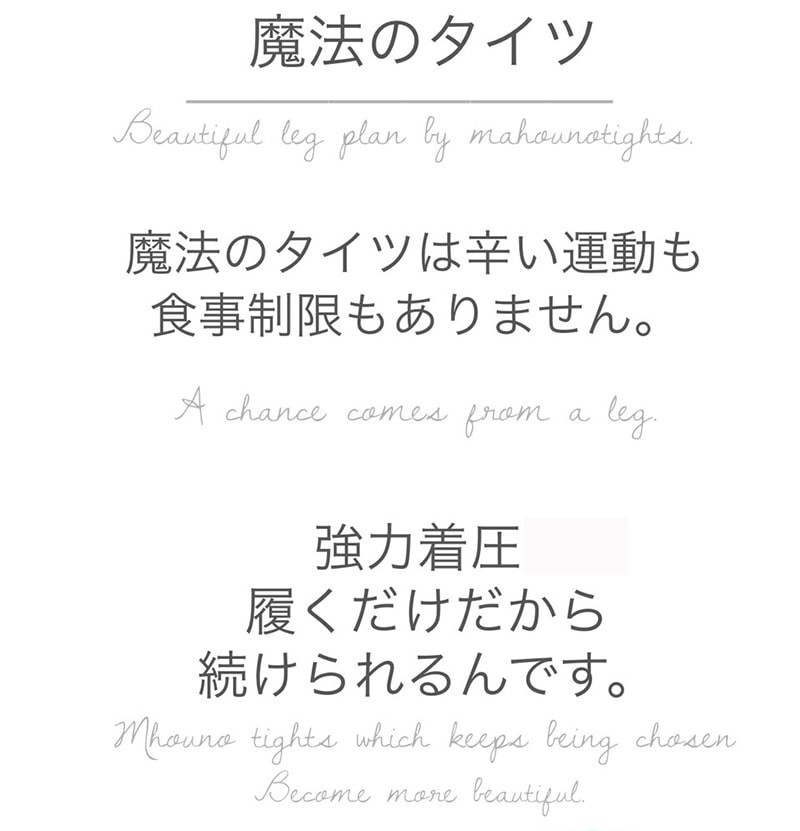 魔法のタイツ
Beautiful leg plan by mahounotights.
魔法のタイツは辛い運動も
食事制限もありません。
A chance comes from a leg.
強力着圧
履くだけだから
続けられるんです。
Mhouno tights which keeps being chosen
Become more beautiful.